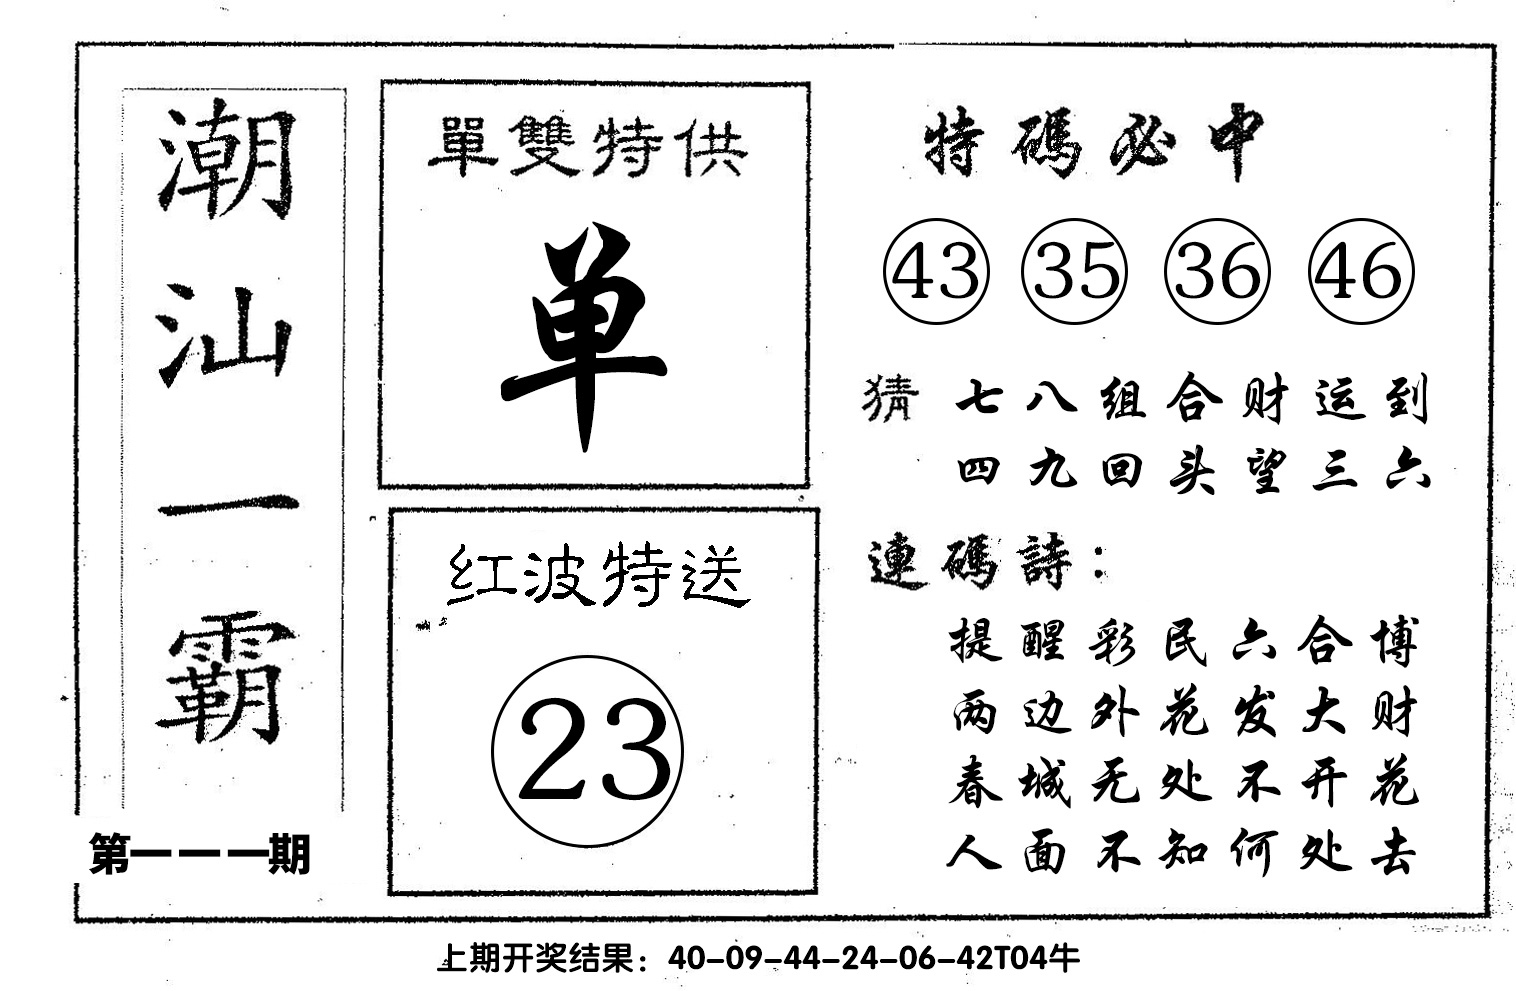 潮汕一霸
第一一一期
單雙特供
单
红波特送
23
特碼必中
43 35 36 46
猜 七八组合财运到
四九回头望三六
連碼詩：
提醒彩民六合博
两边外花发大财
春城无处不开花
人面不知何处去
上期开奖结果：40-09-44-24-06-42T04牛